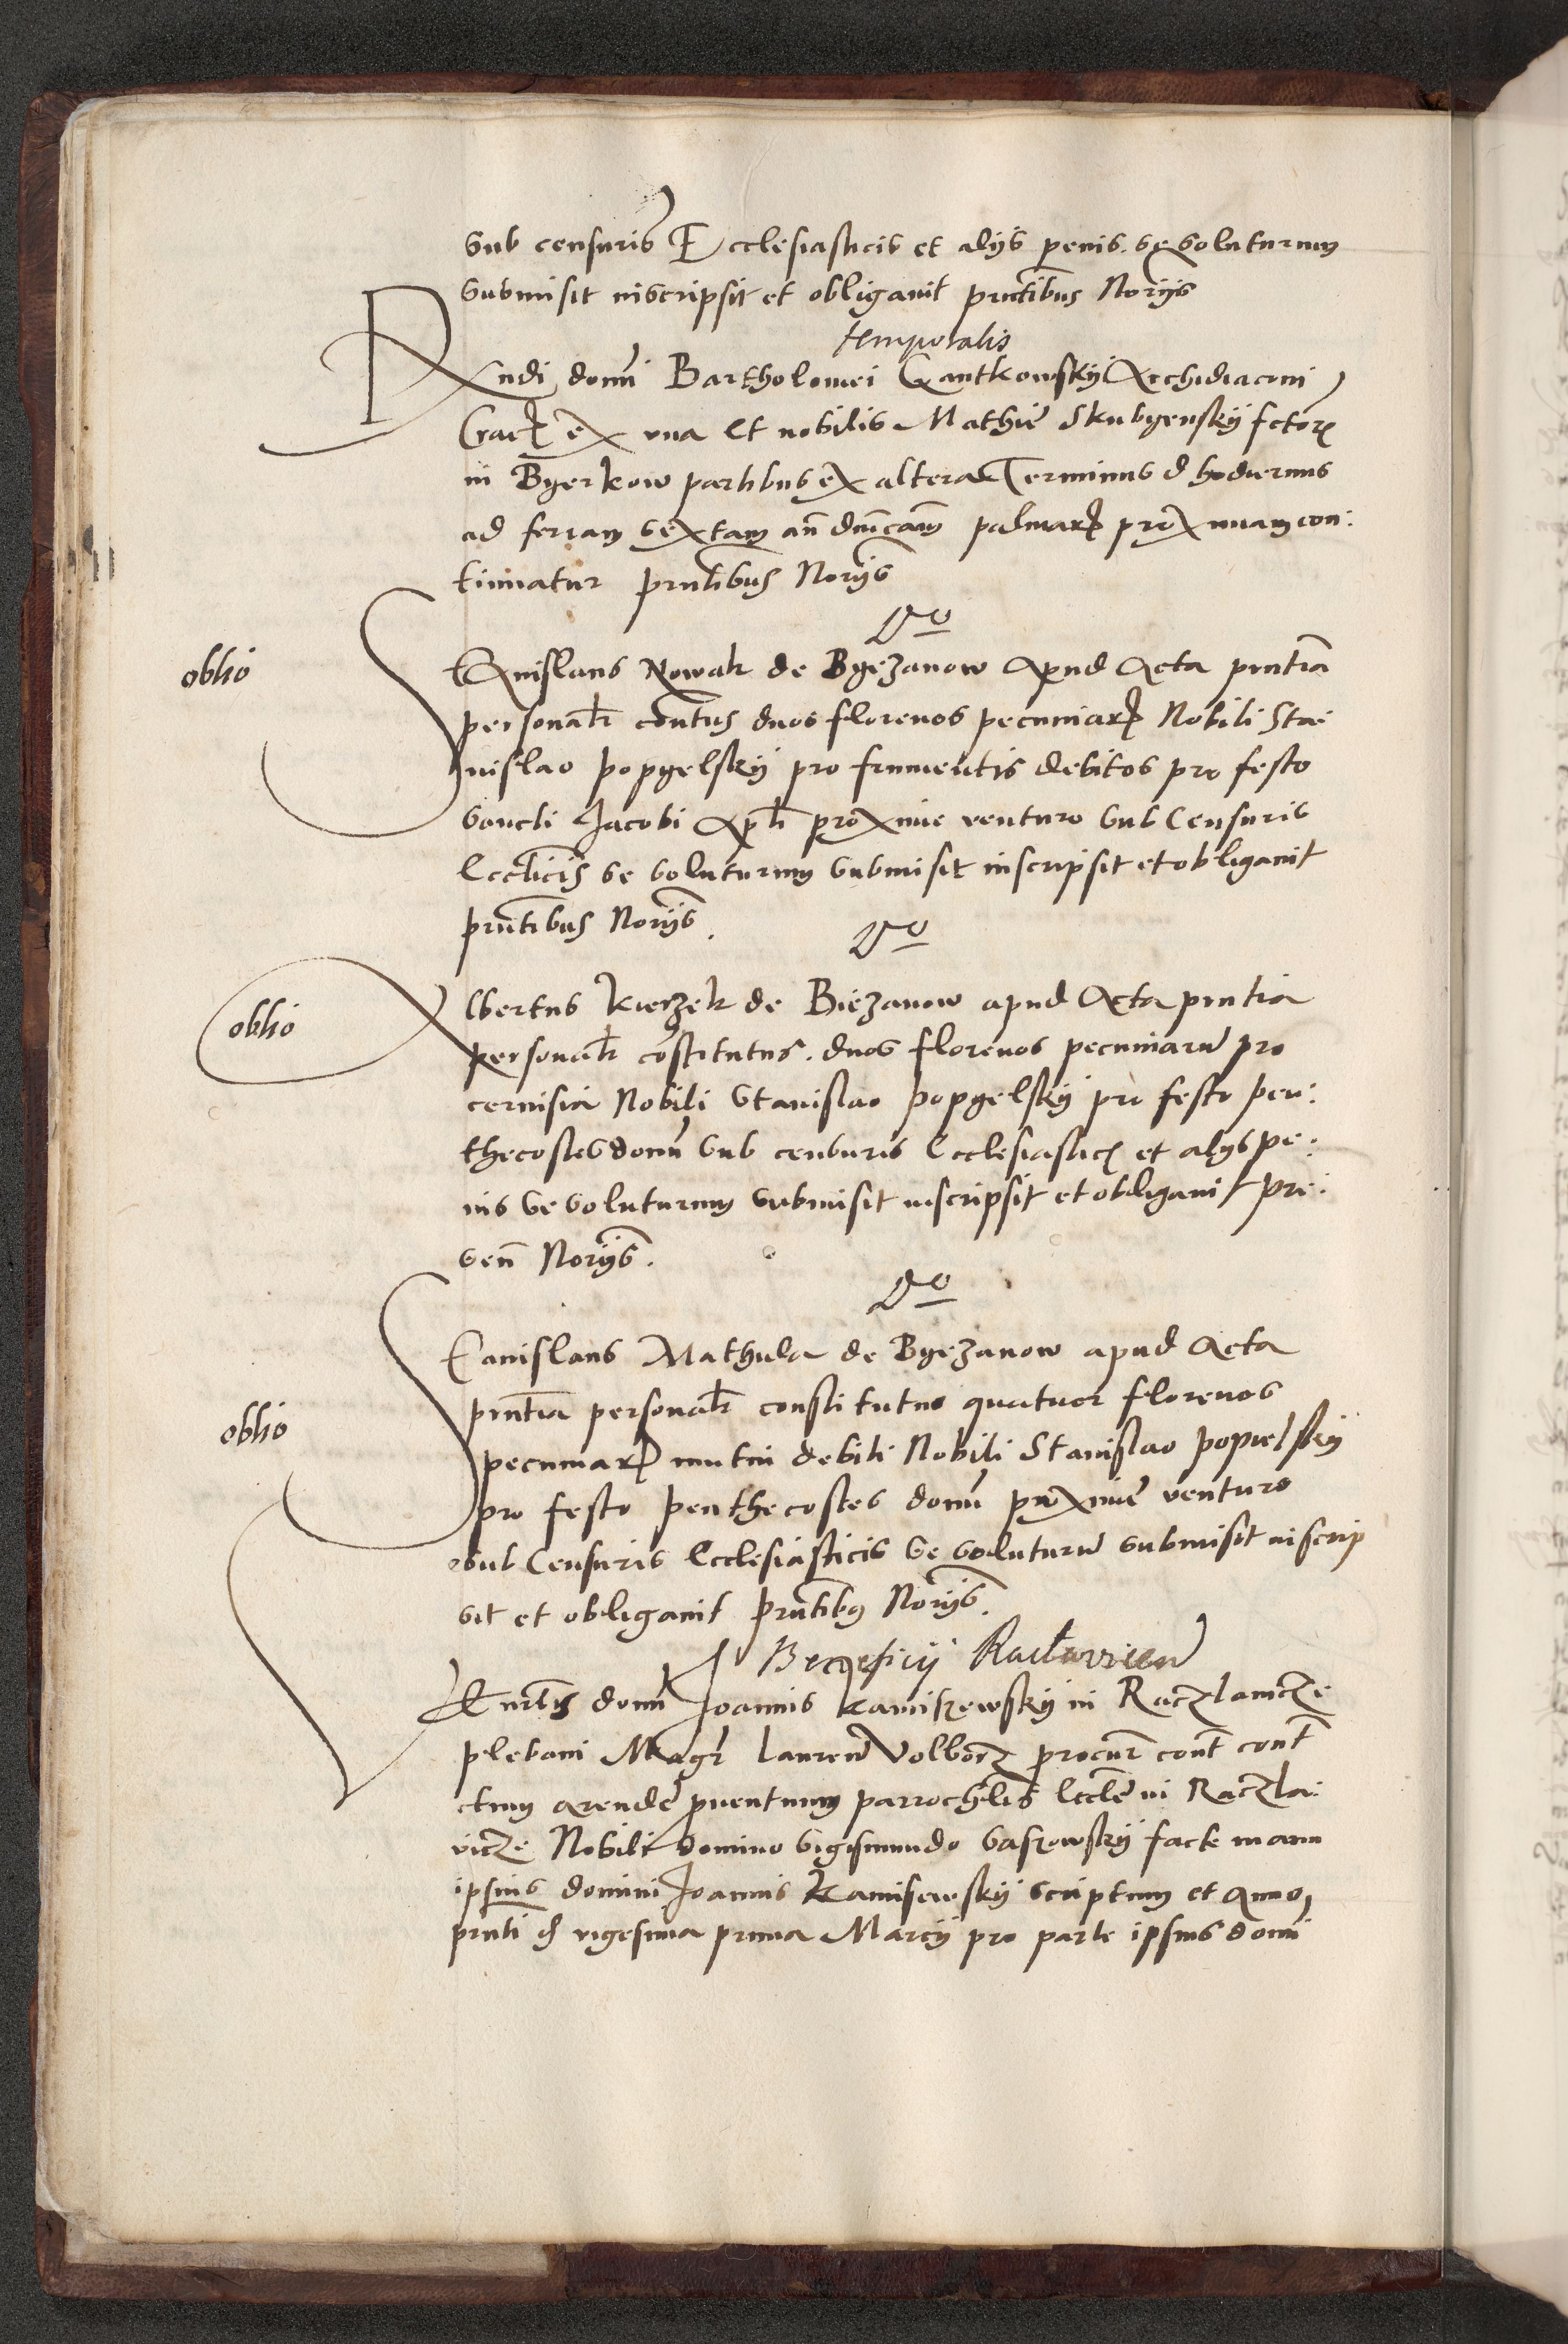 sub censuris Ecclesiasticis et alijs penis se soluturum
submisit inscripsit et obligavit pñtibus Norijs
temporalis
Rñdi domi Bartholomei Gantkowskij Archidiaconi
Crac ex una et nobilis Mathie Skubyenskij fctor
in Byerkow partibus ex altera Terminus d hodiernus
ad feriam sextam añ dñicam palmar proximam con:
tinuatur pñtibus Norijs
Do
oblio
Stanislaus Nowak de Byezanow Apud Acta pñtia
personalr constus duos florenos pecuniar Nobili Sta:
nislao Popyelskij pro frumentis debitos pro festo
sancti Jacobi Apli proxime venturo sub Censuris
Eccliĉis se soluturum submisit inscripsit et obligavit
pñtibus Norijs.
Do
oblio
Albertus Kierzek de Biezanow apud Acta pñtia
personalr costitutus. duos florenos pecuniarũ pro
cervisia Nobili Stanislao Popyelskij pro festo Pen:
thecostes domi sub censuris Ecclesiastic et alijs pe:
nis se soluturum submisit inscripsit et obligavit pre:
sen Norijs.
Do
oblio
Stanislaus Mathula de Byezanow apud Acta
pñtia personalr constitutus quatuor florenos
pecuniar mutui debiti Nobili Stanislao Popielskij
pro festo Penthecostes domi proxime venturo
sub Censuris Ecclesiasticis se soluturũ submisit inscrip
sit et obligavit pñtibus Norijs.
Beneficij Raclavicen
Vnrbis domi Joannis Kamiszewskij in Raczlawicze
plebani Magr Lauren Volborz procur cont cont
ctum arende proventuum parrochlis Eccle in Raczla:
vicze Nobili Domino Sigismundo Gaszowskij facte manu
ipsius domini Joannis Kamisewskij scriptum et Anno
pñti d vigesima prima Marcij pro parte ipsius domi